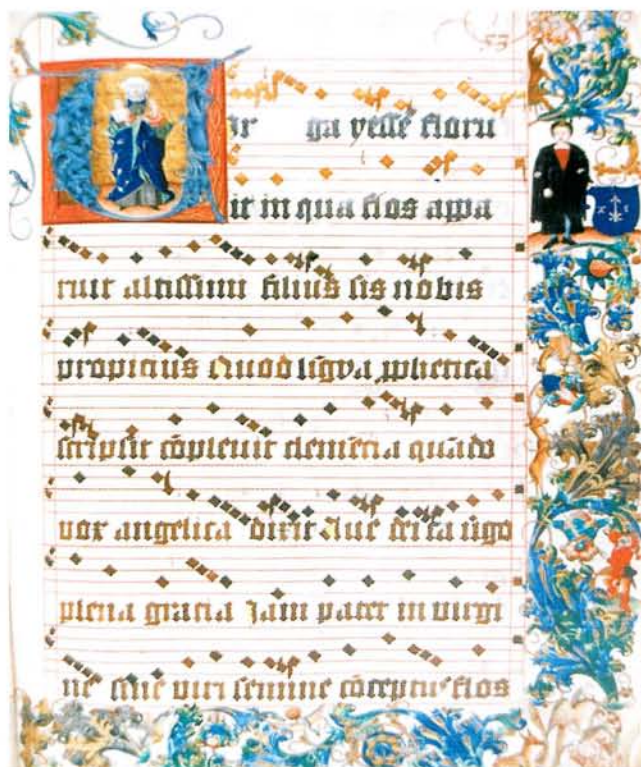 55
Vir ga yesse floru
it in qua flos appa
ruit altissimi filius sis nobis
propicius Quod ligva pphetica
scripsit cōplevit clemēcia quādo
vox angelica dixit Ave v̄go
plena gracia Jam pater in virgi
ne sine viri semine cōceptus flos